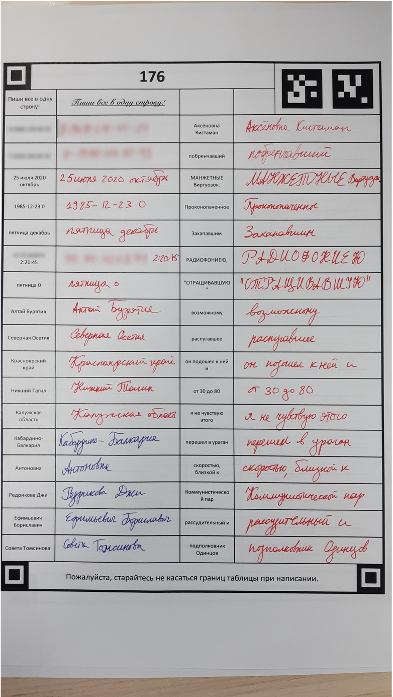 176
Пиши все в одну строку!
Пиши все в одну строку!
Аксёновна Кистаман
Аксёновна Кистаман
побренчавший
побренчавший
25 июля 2020 октябрь
25 июля 2020 октябрь
МАНЖЕТНЫЕ Виртуозок.
МАНЖЕТНЫЕ Виртуозок.
1985-12-23 0
1985-12-23 0
Прокопоченное
Прокопоченное
пятница декабрь
пятница декабрь
Захапавшим
Захапавшим
2:20:45
2:20:45
РАДИОФОНИЕЮ,
РАДИОФОНИЕЮ
пятница 0
пятница 0
"ОТРАЩИВАВШУЮ"
"ОТРАЩИВАВШУЮ"
Алтай Бурятия
Алтай Бурятия
возможному
возможному
Северная Осетия
Северная Осетия
распугавшее
распугавшее
Красноярский край
Красноярский край
он подошел к ней и
он подошел к ней и
Нижний Тагил
Нижний Тагил
от 30 до 80
от 30 до 80
Калужская область
Калужская область
я не чувствую этого
я не чувствую этого
Кабардино-Балкария
Кабардино-Балкария
перешел в ураган
перешел в ураган
Антоновна
Антоновна
скоростью, близкой к
скоростью, близкой к
Редрикова Джи
Коммунистической пар
Коммунистической пар
Ефимьевич Бориславич
рассудительный и
рассудительный и
Совета Томсинова
Совета Томсинова
подполковник Одинцов
подполковник Одинцов
Пожалуйста, старайтесь не касаться границ таблицы при написании.